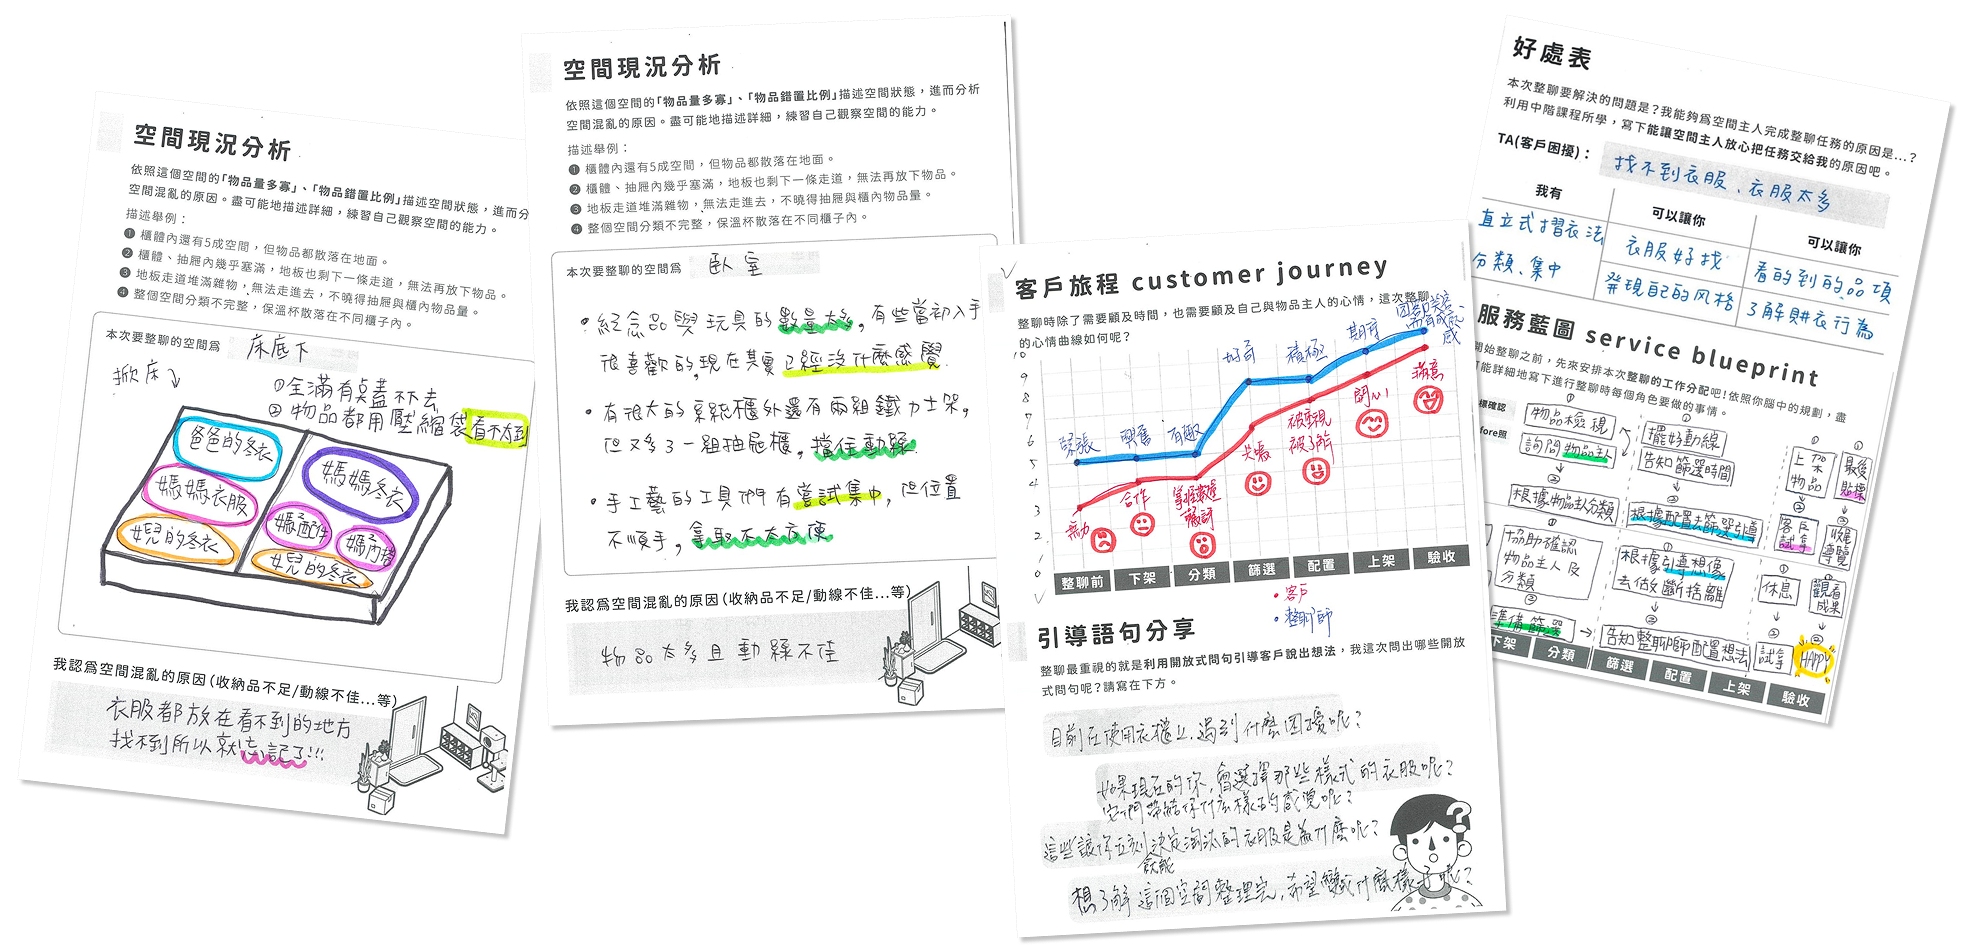 空間現況分析
依照這個空間的「物品量多寡」、「物品錯置比例」描述空間狀態，進而分
空間混亂的原因。盡可能地描述詳細，練習自己觀察空間的能力。
描述舉例：
❶ 櫃體內還有5成空間，但物品都散落在地面。
❷ 櫃體、抽屜內幾乎塞滿，地板也剩下一條走道，無法再放下物品。
❸ 地板走道堆滿雜物，無法走進去，不曉得抽屜與櫃內物品量。
❹ 整個空間分類不完整，保溫杯散落在不同櫃子內。
本次要整聊的空間為 床底下
掀床
①全滿有桌蓋不去
②物品都用壓縮袋看不太到
爸爸的冬衣
媽媽衣服
女兒的冬衣
媽媽冬衣
媽配件
媽內搭
女兒的冬衣
我認為空間混亂的原因(收納品不足/動線不佳...等)
衣服都放在看不到的地方
找不到所以就忘記了!!!
空間現況分析
依照這個空間的「物品量多寡」、「物品錯置比例」描述空間狀態，進而分析
空間混亂的原因。盡可能地描述詳細，練習自己觀察空間的能力。
描述舉例：
❶ 櫃體內還有5成空間，但物品都散落在地面。
❷ 櫃體、抽屜內幾乎塞滿，地板也剩下一條走道，無法再放下物品。
❸ 地板走道堆滿雜物，無法走進去，不曉得抽屜與櫃內物品量。
❹ 整個空間分類不完整，保溫杯散落在不同櫃子內。
本次要整聊的空間為 臥室
• 紀念品與玩具的數量太多，有些當初入手
很喜歡的，現在其實已經沒什麼感覺
• 有很大的系統櫃外還有兩組鐵力士架，
但又多了一組抽屜櫃，擋住動線
• 手工藝的工具們有嘗試集中，但位置
不順手，拿取不太方便
我認為空間混亂的原因(收納品不足/動線不佳...等)
物品太多且動線不佳
客戶旅程 customer journey
整聊時除了需要顧及時間，也需要顧及自己與物品主人的心情，這次整聊
的心情曲線如何呢？
10
9
8
7
6
5
4
3
2
1
0
緊張
興奮
有趣
好奇
積極
期待
無力
合作
掌握數量
被重視
被了解
開心
滿意
整聊前
下架
分類
篩選
配置
上架
驗收
• 客戶
• 整聊師
引導語句分享
整聊最重視的就是利用開放式問句引導客戶說出想法，我這次問出哪些開放
式問句呢？請寫在下方。
目前在使用衣櫃上，遇到什麼困擾呢？
如果現在的你，會選擇那些樣式的衣服呢？
它們帶給你什麼樣的感覺呢？
這些讓你立刻決定淘汰的衣服是為什麼呢？
想了解這個空間整理完，希望變成什麼樣子呢？
好處表
本次整聊要解決的問題是？我能夠為空間主人完成整聊任務的原因是...？
利用中階課程所學，寫下能讓空間主人放心把任務交給我的原因吧。
TA(客戶困擾)： 找不到衣服、衣服太多
我有
可以讓你
可以讓你
直立式摺衣法
衣服好找
看的到的品項
分類、集中
發現自己的风格
了解購衣行為
服務藍圖 service blueprint
開始整聊之前，先來安排本次整聊的工作分配吧！依照你腦中的規劃，盡
可能詳細地寫下進行整聊時每個角色要做的事情。
標確認
fore照
物品檢視
詢問物品主人
根據物品主人分類
協助確認
物品主人及
分類
準備篩選
擺好動線
告知篩選時間
根據配置去篩選引導
根據引導想像
去做斷捨離
告知整聊師配置想法
上架
物品
客戶
試拿
休息
試拿
最後
貼標
收尾
導覽
觀看
成果
HAPPY
下架
分類
篩選
配置
上架
驗收